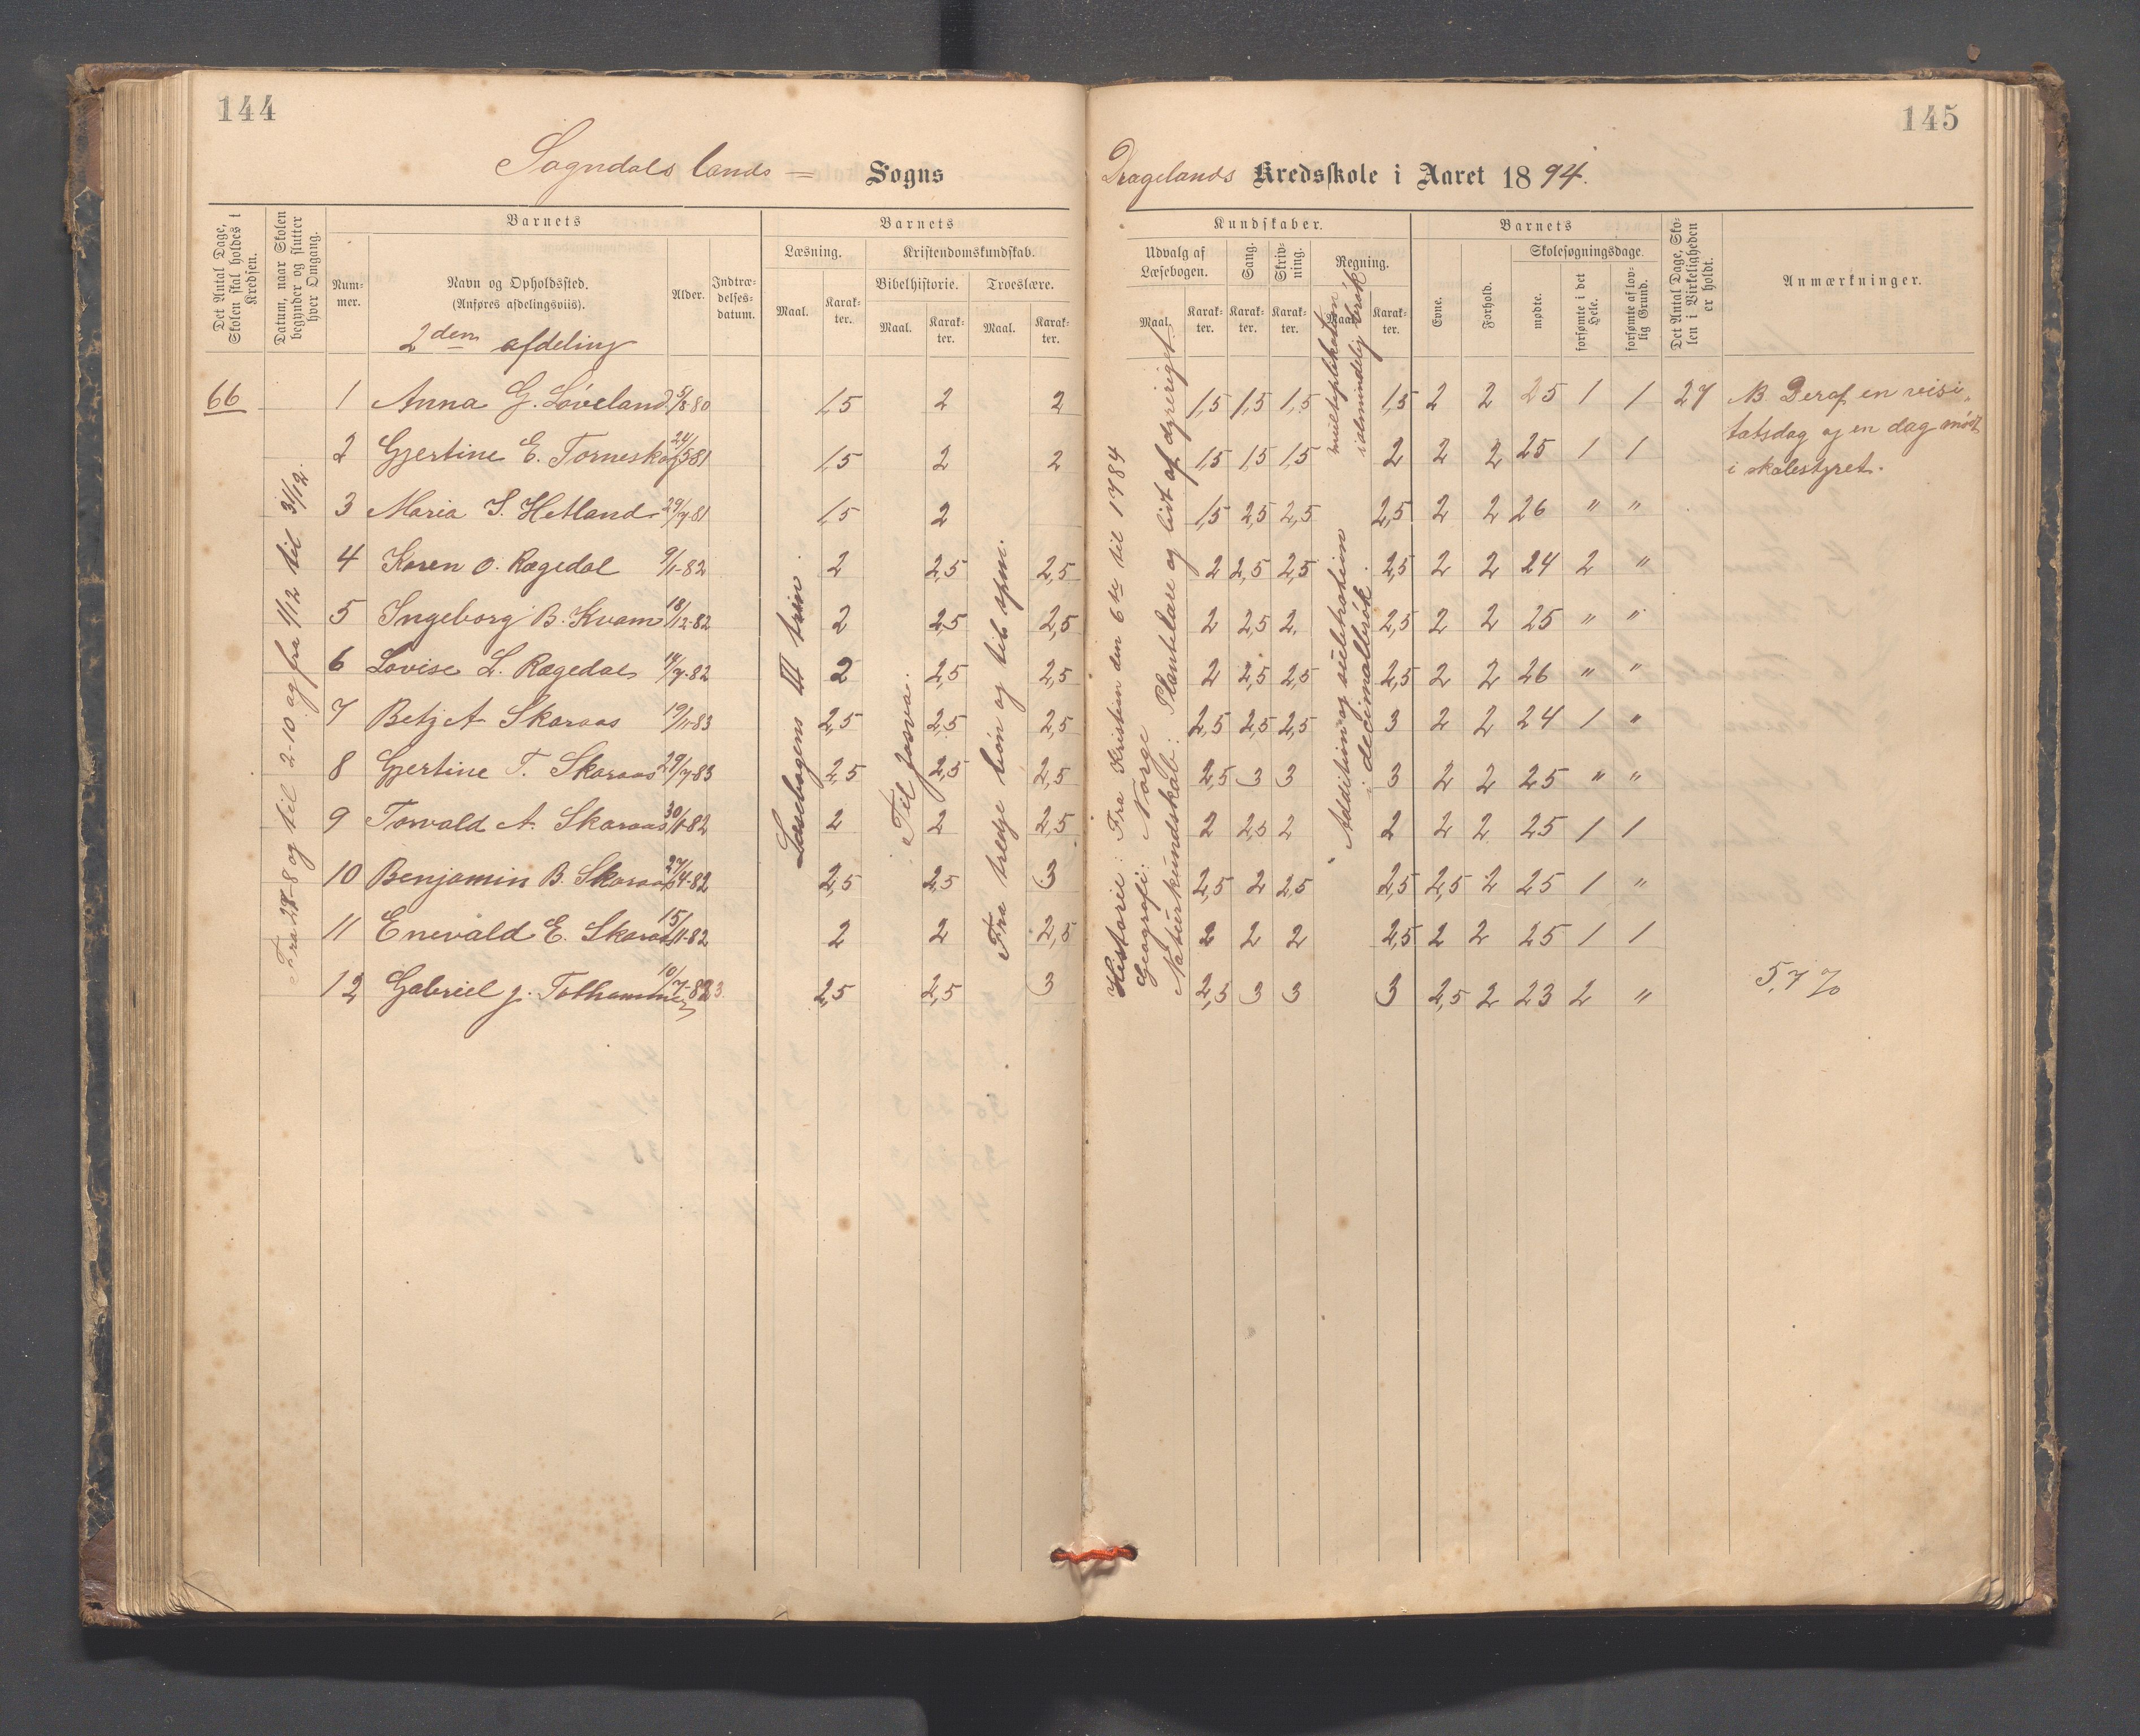 144
145
Sogndals lands = Sogns
Dragelands Kredsskole i Aaret 1894.
Det Antal Dage, Skolen skal holdes i Kredsen.
Datum, naar Skolen begynder og slutter hver Omgang.
Barnets
Nummer.
Navn og Opholdssted.
(Anføres afdelingsviis).
2den afdeling
Alder.
Indtrædelses-datum.
Barnets
Læsning.
Maal.
Karakter.
Kristendomskundskab.
Bibelhistorie.
Maal.
Karakter.
Troeslære.
Maal.
Karakter.
Kundskaber.
Udvalg af Læsebogen.
Maal.
Karakter.
Sang.
Karakter.
Skrivning.
Karakter.
Regning.
Maal.
Karakter.
Barnets
Evne.
Forhold.
Skolesøgningsdage.
mødte.
forsømte i det Hele.
forsømte af lovlig Grund.
Det Antal Dage, Skolen i Virkeligheden er holdt.
Anmærkninger.
66
Fra 28-8 og til 2-10 og fra 1/12 til 31/12.
Læsebogens III trin
Til Josva.
Fra tredje bøn og til opm.
Historie: Fra Kristian den 6te til 1784
Geografi: Norge
Naturkundskab: Plantelære og lidt af dyreriget.
Addition og subtraktion i decimalbrøk
multiplikation i almindelig brøk
1 Anna G. Løveland 5/8-80 1,5 2 2 1,5 1,5 1,5 1,5 2 2 25 1 1 27 NB Deraf en visi-
tatsdag og en dag mødt
i skolestyret.
2 Gjertine E. Torneskog 24/5-81 1,5 2 2 1,5 1,5 1,5 2 2 2 25 1 1
3 Maria S. Hetland 29/7-81 1,5 2 1,5 2,5 2,5 2,5 2 2 26 " "
4 Karen O. Rægedal 9/11-82 2 2,5 2,5 2 2,5 2,5 2,5 2 2 24 2 "
5 Ingeborg B. Kvam 18/12-82 2 2,5 2,5 2 2,5 2. 2,5 2 2 25 " "
6 Lovise L. Rægedal 14/7-82 2 2,5 2,5 2 2,5 2,5 2,5 2 2 26 " "
7 Betzi A Skaraas 19/11-83 2,5 2,5 2,5 2,5 2,5 2,5 3 2 2 24 1 "
8 Gjertine T. Skaraas 29/7-83 2,5 2,5 2,5 2,5 3 3 3 2 2 25 " "
9 Torvald A. Skaraas 30/1-82 2 2 2,5 2 2,5 2 2 2 2 25 1 1
10 Benjamin B. Skaraas 27/4-82 2,5 2,5 3 2,5 2 2,5 2,5 2,5 2 25 1 "
11 Enevald E. Skaraas 15/11-82 2 2 2,5 2 2 2 2,5 2 2 25 1 1
12 Gabriel J. Tothammer 10/7-83 2,5 2,5 3 2,5 3 3 3 2,5 2 23 2 "
5,7 %